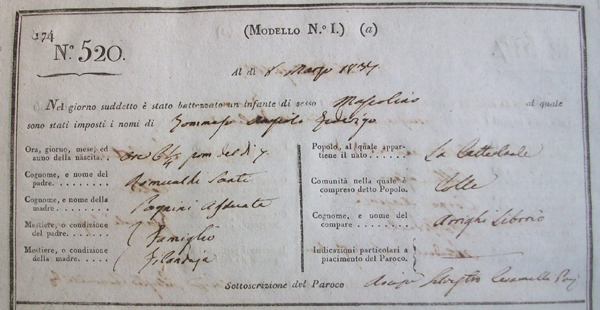 174
(Modello N.º I.) (a)
Nº 520.
Al dì Marzo 1837
Nel giorno suddetto è stato battezzato un infante di sesso Mascolino al quale
sono stati imposti i nomi di Tommaso Angiolo
Ora, giorno, mese, ed
anno della nascita. pom. del dì 7
Cognome, e nome del
padre. Romualdi Santi
Cognome, e nome della
madre. Pagnini
Mestiere, o condizione
del padre. Famiglio
Mestiere, o condizione
della madre. Filandaja
Popolo, al quale appar-
tiene il nato La Cattedrale
Comunità nella quale è
compreso detto Popolo. Colle
Cognome, e nome del
compare Arrighi Liborio
Indicazioni particolari a
piacimento del Paroco.
Sottoscrizione del Paroco Silvestro